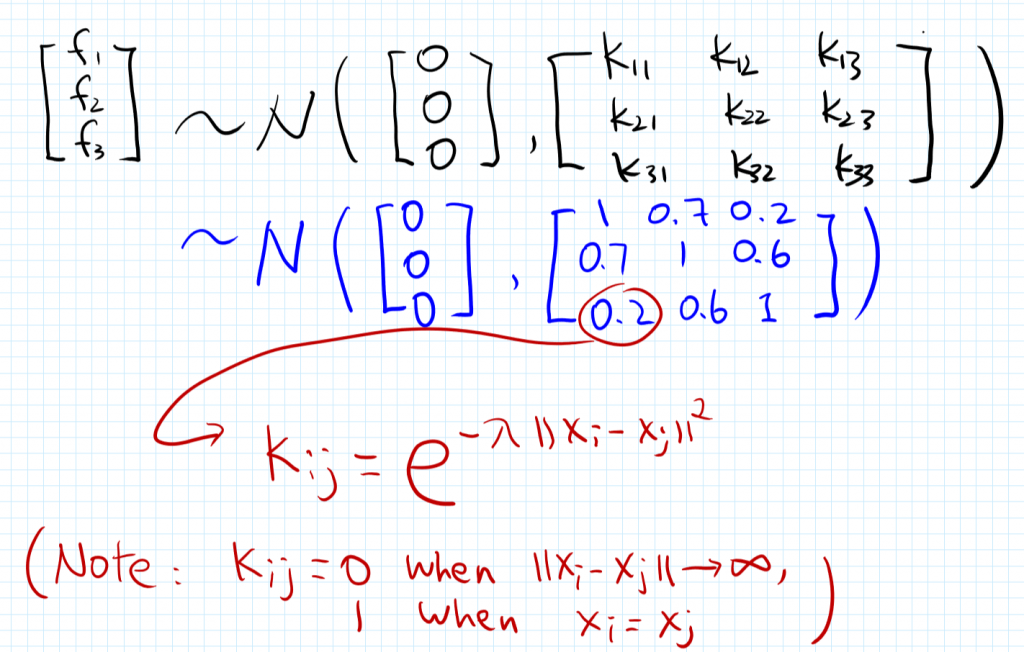 [f₁ f₂ f₃] ~ N([0 0 0], [K₁₁ K₁₂ K₁₃
K₂₁ K₂₂ K₂₃
K₃₁ K₃₂ K₃₃])
~ N([0 0 0], [1 0.7 0.2
0.7 1 0.6
0.2 0.6 1])
Kij = e^(-λ||xi - xj||²)
(Note: Kij = 0 when ||xi - xj|| → ∞,
1 when xi = xj)